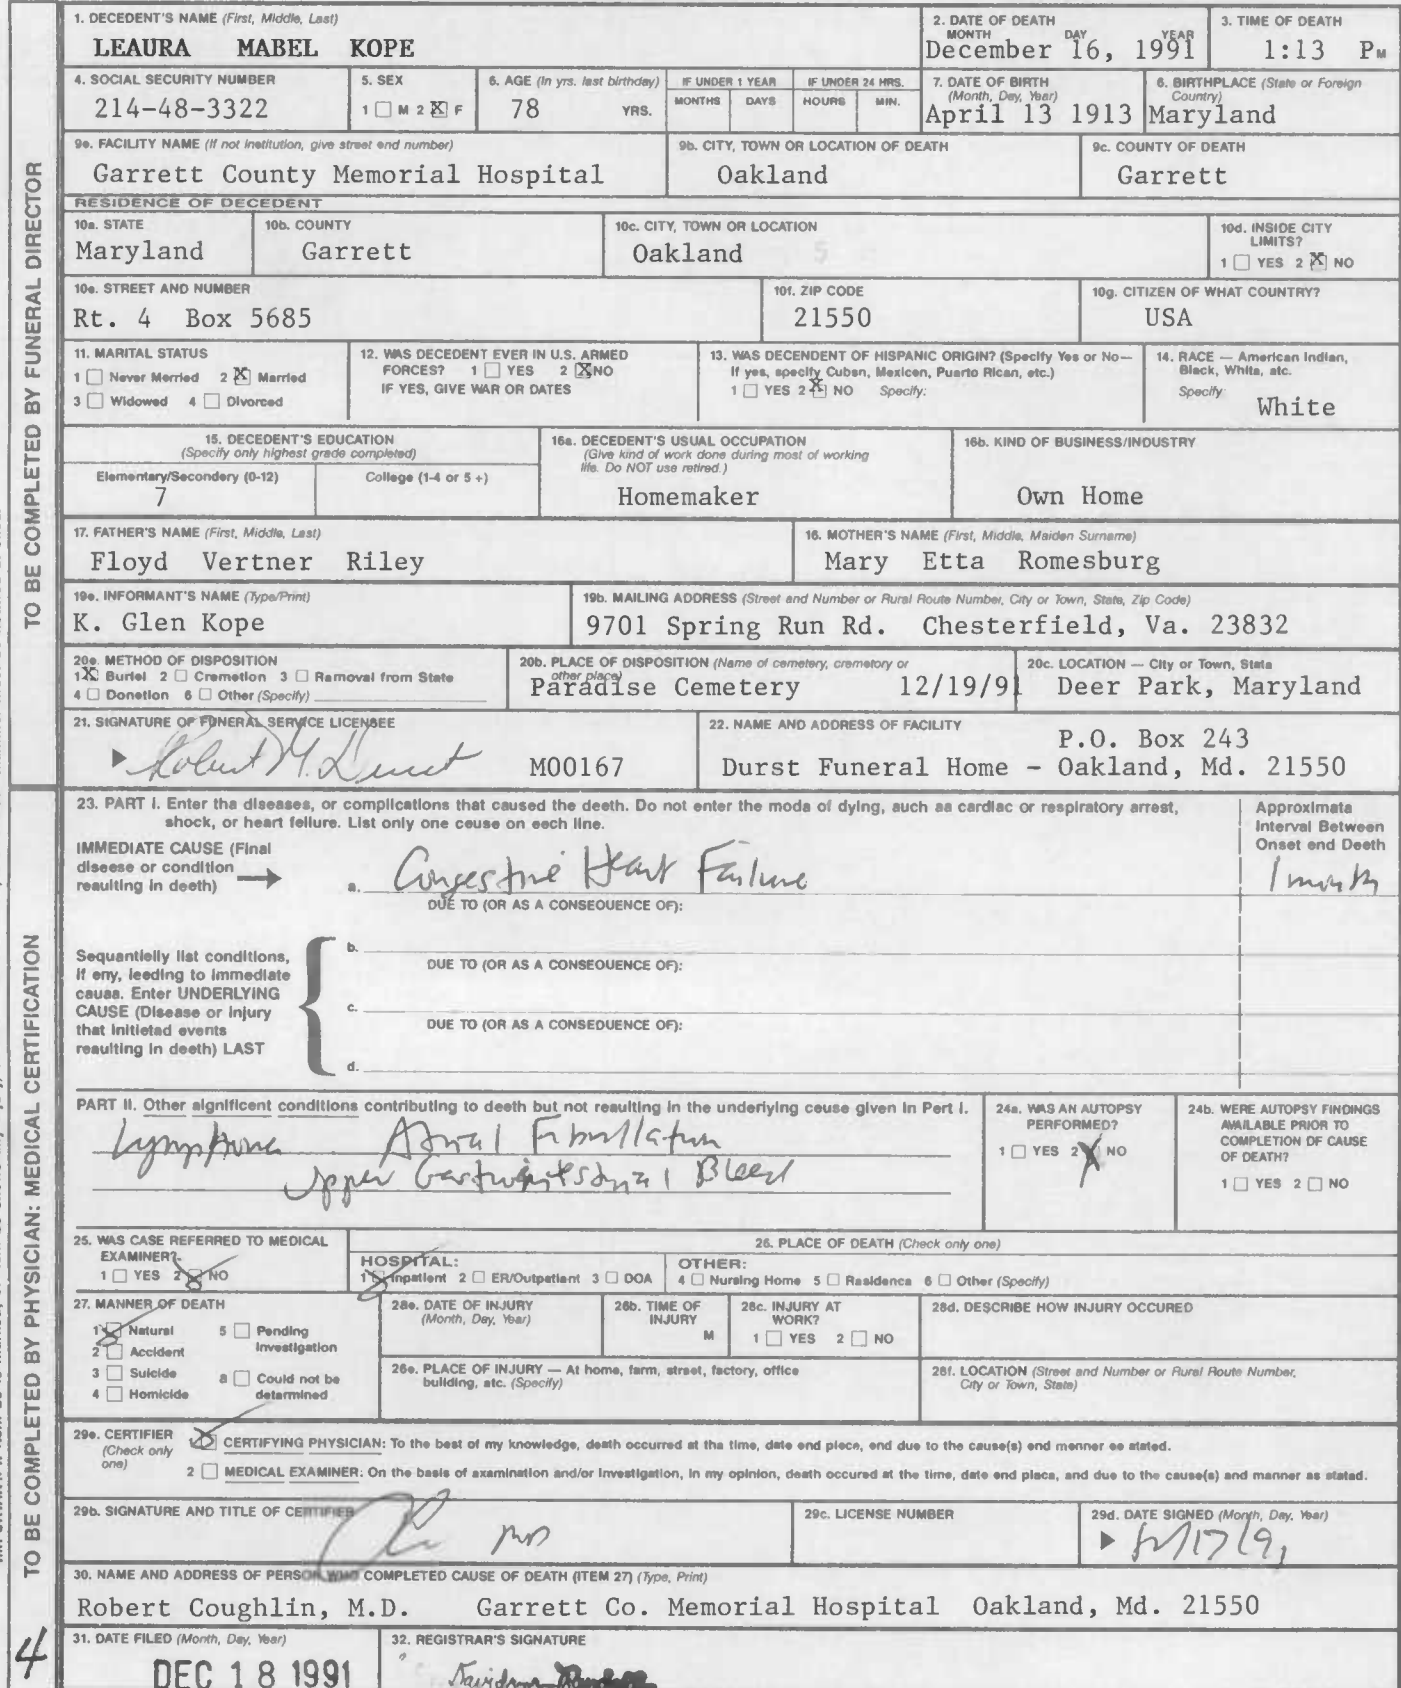 1. DECEDENT'S NAME (First, Middle, Last)
LEAURA MABEL KOPE
2. DATE OF DEATH
MONTH DAY YEAR
December 16, 1991
3. TIME OF DEATH
1:13 PM
4. SOCIAL SECURITY NUMBER
214-48-3322
5. SEX
1 M 2 X F
6. AGE (In yrs. last birthday)
78 YRS.
IF UNDER 1 YEAR
MONTHS DAYS
IF UNDER 24 HRS.
HOURS MIN.
7. DATE OF BIRTH
(Month, Day, Year)
April 13 1913
8. BIRTHPLACE (State or Foreign
Country)
Maryland
9a. FACILITY NAME (If not institution, give street and number)
Garrett County Memorial Hospital
9b. CITY, TOWN OR LOCATION OF DEATH
Oakland
9c. COUNTY OF DEATH
Garrett
RESIDENCE OF DECEDENT
10a. STATE
Maryland
10b. COUNTY
Garrett
10c. CITY, TOWN OR LOCATION
Oakland
10d. INSIDE CITY
LIMITS?
1 YES 2 X NO
10e. STREET AND NUMBER
Rt. 4 Box 5685
10f. ZIP CODE
21550
10g. CITIZEN OF WHAT COUNTRY?
USA
11. MARITAL STATUS
1 Never Married 2 X Married
3 Widowed 4 Divorced
12. WAS DECEDENT EVER IN U.S. ARMED
FORCES? 1 YES 2 X NO
IF YES, GIVE WAR OR DATES
13. WAS DECENDENT OF HISPANIC ORIGIN? (Specify Yes or No—
If yes, specify Cuban, Mexican, Puerto Rican, etc.)
1 YES 2 X NO Specify:
14. RACE — American Indian,
Black, White, etc.
Specify
White
15. DECEDENT'S EDUCATION
(Specify only highest grade completed)
Elementary/Secondary (0-12)
7
College (1-4 or 5 +)
16a. DECEDENT'S USUAL OCCUPATION
(Give kind of work done during most of working
life. Do NOT use retired.)
Homemaker
16b. KIND OF BUSINESS/INDUSTRY
Own Home
17. FATHER'S NAME (First, Middle, Last)
Floyd Vertner Riley
18. MOTHER'S NAME (First, Middle, Maiden Surname)
Mary Etta Romesburg
19a. INFORMANT'S NAME (Type/Print)
K. Glen Kope
19b. MAILING ADDRESS (Street and Number or Rural Route Number, City or Town, State, Zip Code)
9701 Spring Run Rd. Chesterfield, Va. 23832
20a. METHOD OF DISPOSITION
1 X Burial 2 Cremation 3 Removal from State
4 Donation 6 Other (Specify)
20b. PLACE OF DISPOSITION (Name of cemetery, crematory or
other place)
Paradise Cemetery 12/19/91
20c. LOCATION — City or Town, State
Deer Park, Maryland
21. SIGNATURE OF FUNERAL SERVICE LICENSEE
Robert M. Durst M00167
22. NAME AND ADDRESS OF FACILITY
P.O. Box 243
Durst Funeral Home - Oakland, Md. 21550
23. PART I. Enter the diseases, or complications that caused the death. Do not enter the mode of dying, such as cardiac or respiratory arrest,
shock, or heart failure. List only one cause on each line.
Approximate
Interval Between
Onset and Death
IMMEDIATE CAUSE (Final
disease or condition
resulting in death)
a. Congestive Heart Failure
1 month
DUE TO (OR AS A CONSEQUENCE OF):
Sequentially list conditions,
if any, leading to immediate
cause. Enter UNDERLYING
CAUSE (Disease or injury
that initiated events
resulting in death) LAST
b.
DUE TO (OR AS A CONSEQUENCE OF):
c.
DUE TO (OR AS A CONSEQUENCE OF):
d.
PART II. Other significant conditions contributing to death but not resulting in the underlying cause given in Part I.
Lymphoma Atrial Fibrillation
Upper Gastrointestinal Bleed
24a. WAS AN AUTOPSY
PERFORMED?
1 YES 2 X NO
24b. WERE AUTOPSY FINDINGS
AVAILABLE PRIOR TO
COMPLETION OF CAUSE
OF DEATH?
1 YES 2 NO
25. WAS CASE REFERRED TO MEDICAL
EXAMINER?
1 YES 2 NO
26. PLACE OF DEATH (Check only one)
HOSPITAL:
1 Inpatient 2 ER/Outpatient 3 DOA
OTHER:
4 Nursing Home 5 Residence 6 Other (Specify)
27. MANNER OF DEATH
1 Natural 5 Pending
Investigation
2 Accident
3 Suicide 8 Could not be
determined
4 Homicide
28a. DATE OF INJURY
(Month, Day, Year)
28b. TIME OF
INJURY
M
28c. INJURY AT
WORK?
1 YES 2 NO
28d. DESCRIBE HOW INJURY OCCURED
28e. PLACE OF INJURY — At home, farm, street, factory, office
building, etc. (Specify)
28f. LOCATION (Street and Number or Rural Route Number,
City or Town, State)
29a. CERTIFIER
(Check only
one)
CERTIFYING PHYSICIAN: To the best of my knowledge, death occurred at the time, date and place, and due to the cause(s) and manner as stated.
2 MEDICAL EXAMINER: On the basis of examination and/or investigation, in my opinion, death occured at the time, date and place, and due to the cause(s) and manner as stated.
29b. SIGNATURE AND TITLE OF CERTIFIER
MD
29c. LICENSE NUMBER
29d. DATE SIGNED (Month, Day, Year)
12/17/91
30. NAME AND ADDRESS OF PERSON WHO COMPLETED CAUSE OF DEATH (ITEM 27) (Type, Print)
Robert Coughlin, M.D. Garrett Co. Memorial Hospital Oakland, Md. 21550
31. DATE FILED (Month, Day, Year)
DEC 18 1991
32. REGISTRAR'S SIGNATURE
TO BE COMPLETED BY FUNERAL DIRECTOR
TO BE COMPLETED BY PHYSICIAN: MEDICAL CERTIFICATION
4